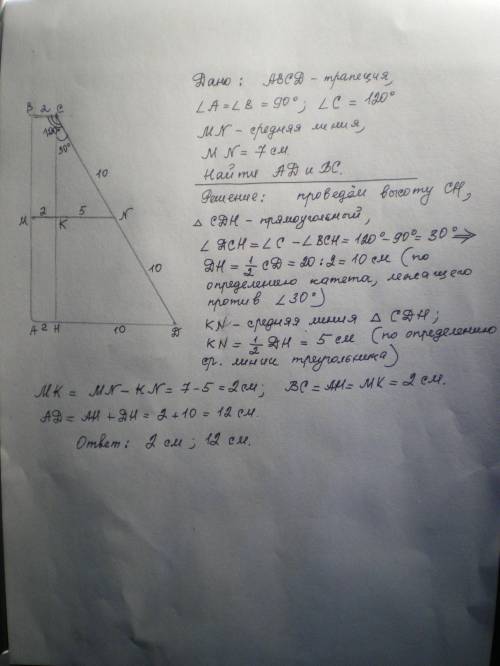 Дано: ABCD - трапеция,
∠A = ∠B = 90°; ∠C = 120°
MN - средняя линия,
MN = 7 см.
Найти AD и BC.
Решение: проведём высоту CH,
△ CDH - прямоугольный,
∠ DCH = ∠C - ∠BCH = 120° - 90° = 30° ⇒
DH = 1/2 CD = 20 : 2 = 10 см (по
определению катета, лежащего
против ∠30°)
KN - средняя линия △ CDH;
KN = 1/2 DH = 5 см (по определению
ср. линии треугольника)
MK = MN - KN = 7 - 5 = 2 см; BC = AH = MK = 2 см.
AD = AH + DH = 2 + 10 = 12 см.
Ответ: 2 см; 12 см.
B 2 C
120°
30°
10
M 2 K 5 N
10
A 2 H 10 D